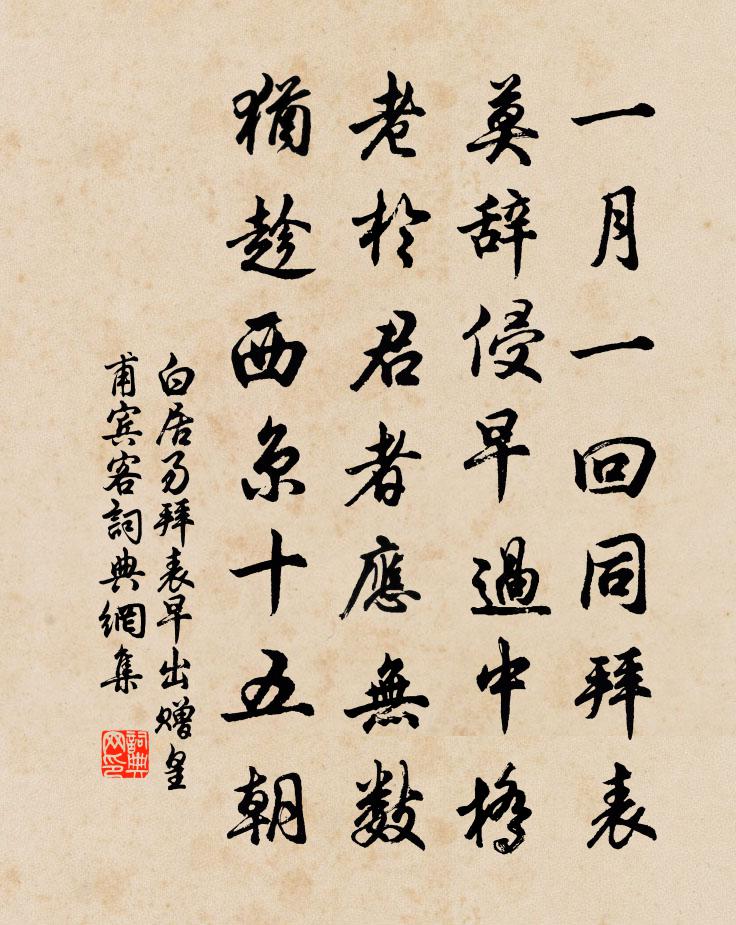 一月一回同拜表
莫辞侵早過中橋
老於君者應無數
猶趁西京十五朝
白居易拜表早出赠皇
甫宾客詞典網集
詞典网印